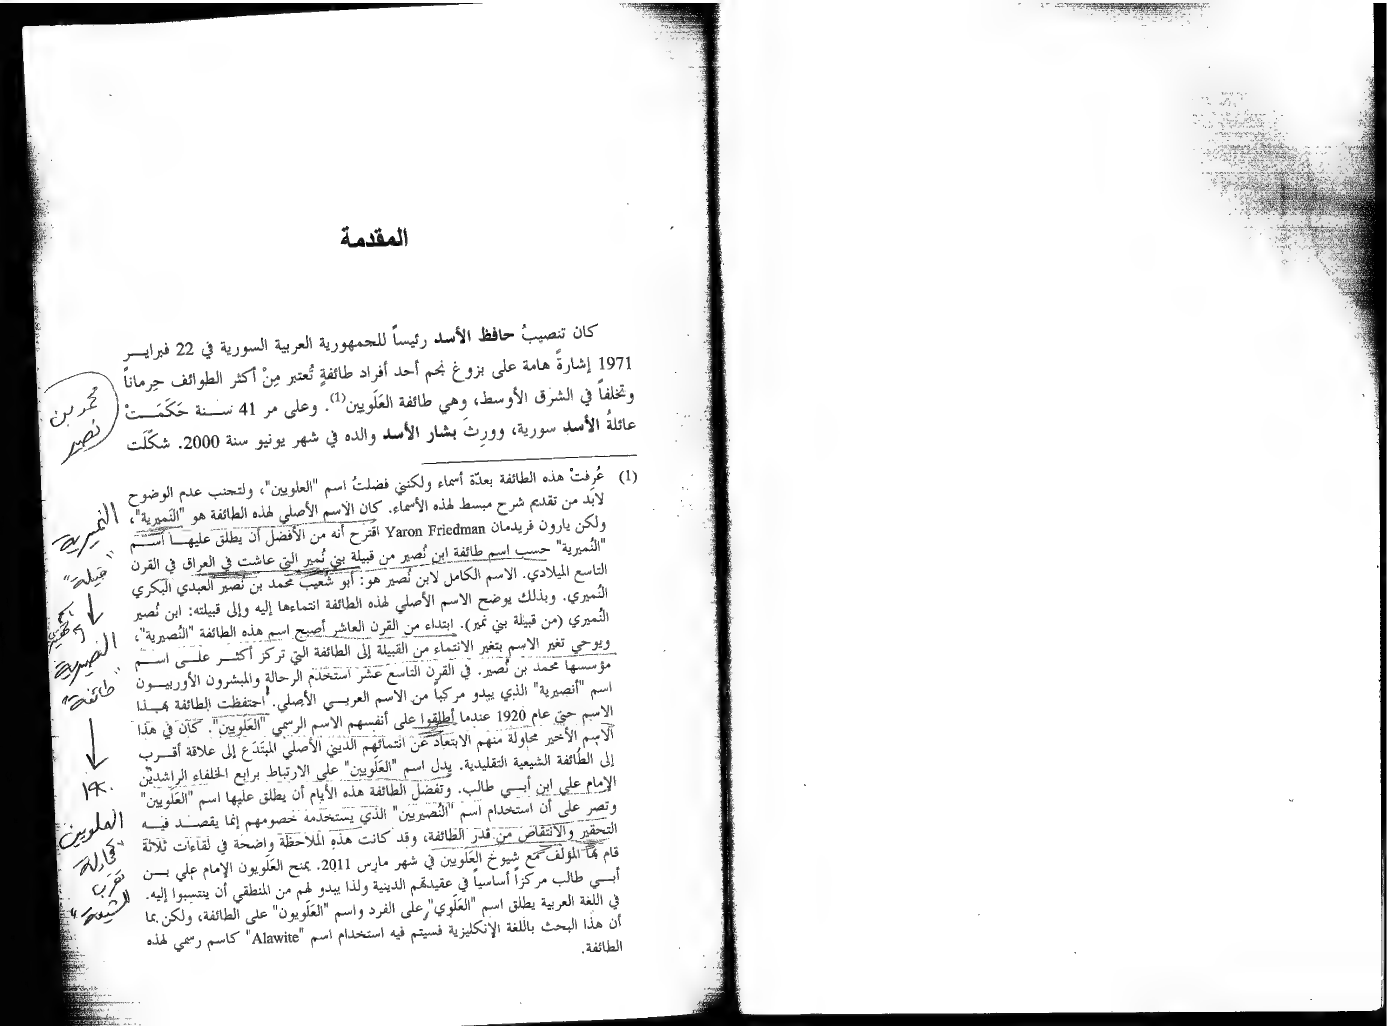 المقدمة
كان تنصيبُ حافظ الأسد رئيساً للجمهورية العربية السورية في 22 فبرايــر
1971 إشارةً هامة على بزوغ نجم أحد أفراد طائفةٍ تُعتبر مِنْ أكثر الطوائف حِرماناً
وتخلفاً في الشرق الأوسط، وهي طائفة العَلَويين(1). وعلى مر 41 ســنة حَكَمَــتْ
عائلةُ الأسد سورية، وورِثَ بشار الأسد والده في شهر يونيو سنة 2000. شكّلَت
(1) عُرِفتْ هذه الطائفة بعدّة أسماء ولكنني فضلتُ اسم "العلويين"، ولتجنب عدم الوضوح
لابَد من تقديم شرح مبسط لهذه الأسماء. كان الاسم الأصلي لهذه الطائفة هو "النُميرية"،
ولكن يارون فريدمان Yaron Friedman اقترح أنه من الأفضل أن يطلق عليهــا اســم
"النُميرية" حسب اسم طائفة ابن نُصير من قبيلة بني نُمير التي عاشت في العراق في القرن
التاسع الميلادي. الاسم الكامل لابن نُصير هو: أبو شُعيب محمد بن نُصير العبدي البكري
النُميري. وبذلك يوضح الاسم الأصلي لهذه الطائفة انتماءها إليه وإلى قبيلته: ابن نُصير
النُميري (من قبيلة بني نمير). ابتداء من القرن العاشر أصبح اسم هذه الطائفة "النُصيرية"،
ويوحي تغير الاسم بتغير الانتماء من القبيلة إلى الطائفة التي تركز أكثــر علــى اســم
مؤسسها محمد بن نُصير. في القرن التاسع عشر استخدم الرحالة والمبشرون الأوربيــون
اسم "أنصيرية" الذي يبدو مركباً من الاسم العربــي الأصلي. احتفظت الطائفة بهــذا
الاسم حتى عام 1920 عندما أطلقوا على أنفسهم الاسم الرسمي "العَلَويين". كان في هذا
الاسم الأخير محاولة منهم الابتعاد عن انتمائهم الديني الأصلي المُبتَدَع إلى علاقة أقــرب
إلى الطائفة الشيعية التقليدية. يدل اسم "العَلَويين" على الارتباط برابع الخلفاء الراشديّن
الإمام علي ابن أبــي طالب. وتفضل الطائفة هذه الأيام أن يطلق عليها اسم "العَلَويين"
وتصر على أن استخدام اسم "النُصيريين" الذي يستخدمه خصومهم إنما يقصــد فيــه
التحقير والانتقاص من قدر الطائفة، وقد كانت هذه الملاحظة واضحة في لقاءات ثلاثة
قام بها المؤلف مع شيوخ العَلَويين في شهر مارس 2011. يمنح العَلَويون الإمام علي بــن
أبــي طالب مركزاً أساسياً في عقيدتهم الدينية ولذا يبدو لهم من المنطقي أن ينتسبوا إليه.
في اللغة العربية يطلق اسم "العَلَوي" على الفرد واسم "العَلَويون" على الطائفة، ولكن بما
أن هذا البحث باللغة الإنكليزية فسيتم فيه استخدام اسم "Alawite" كاسم رسمي لهذه
الطائفة.
محمد بن
نصير
النميرية
"قبيلة"
النصيرية
"طائفة"
١٩٢٠
العلويين
"محاولة
تقرب
للشيعة"